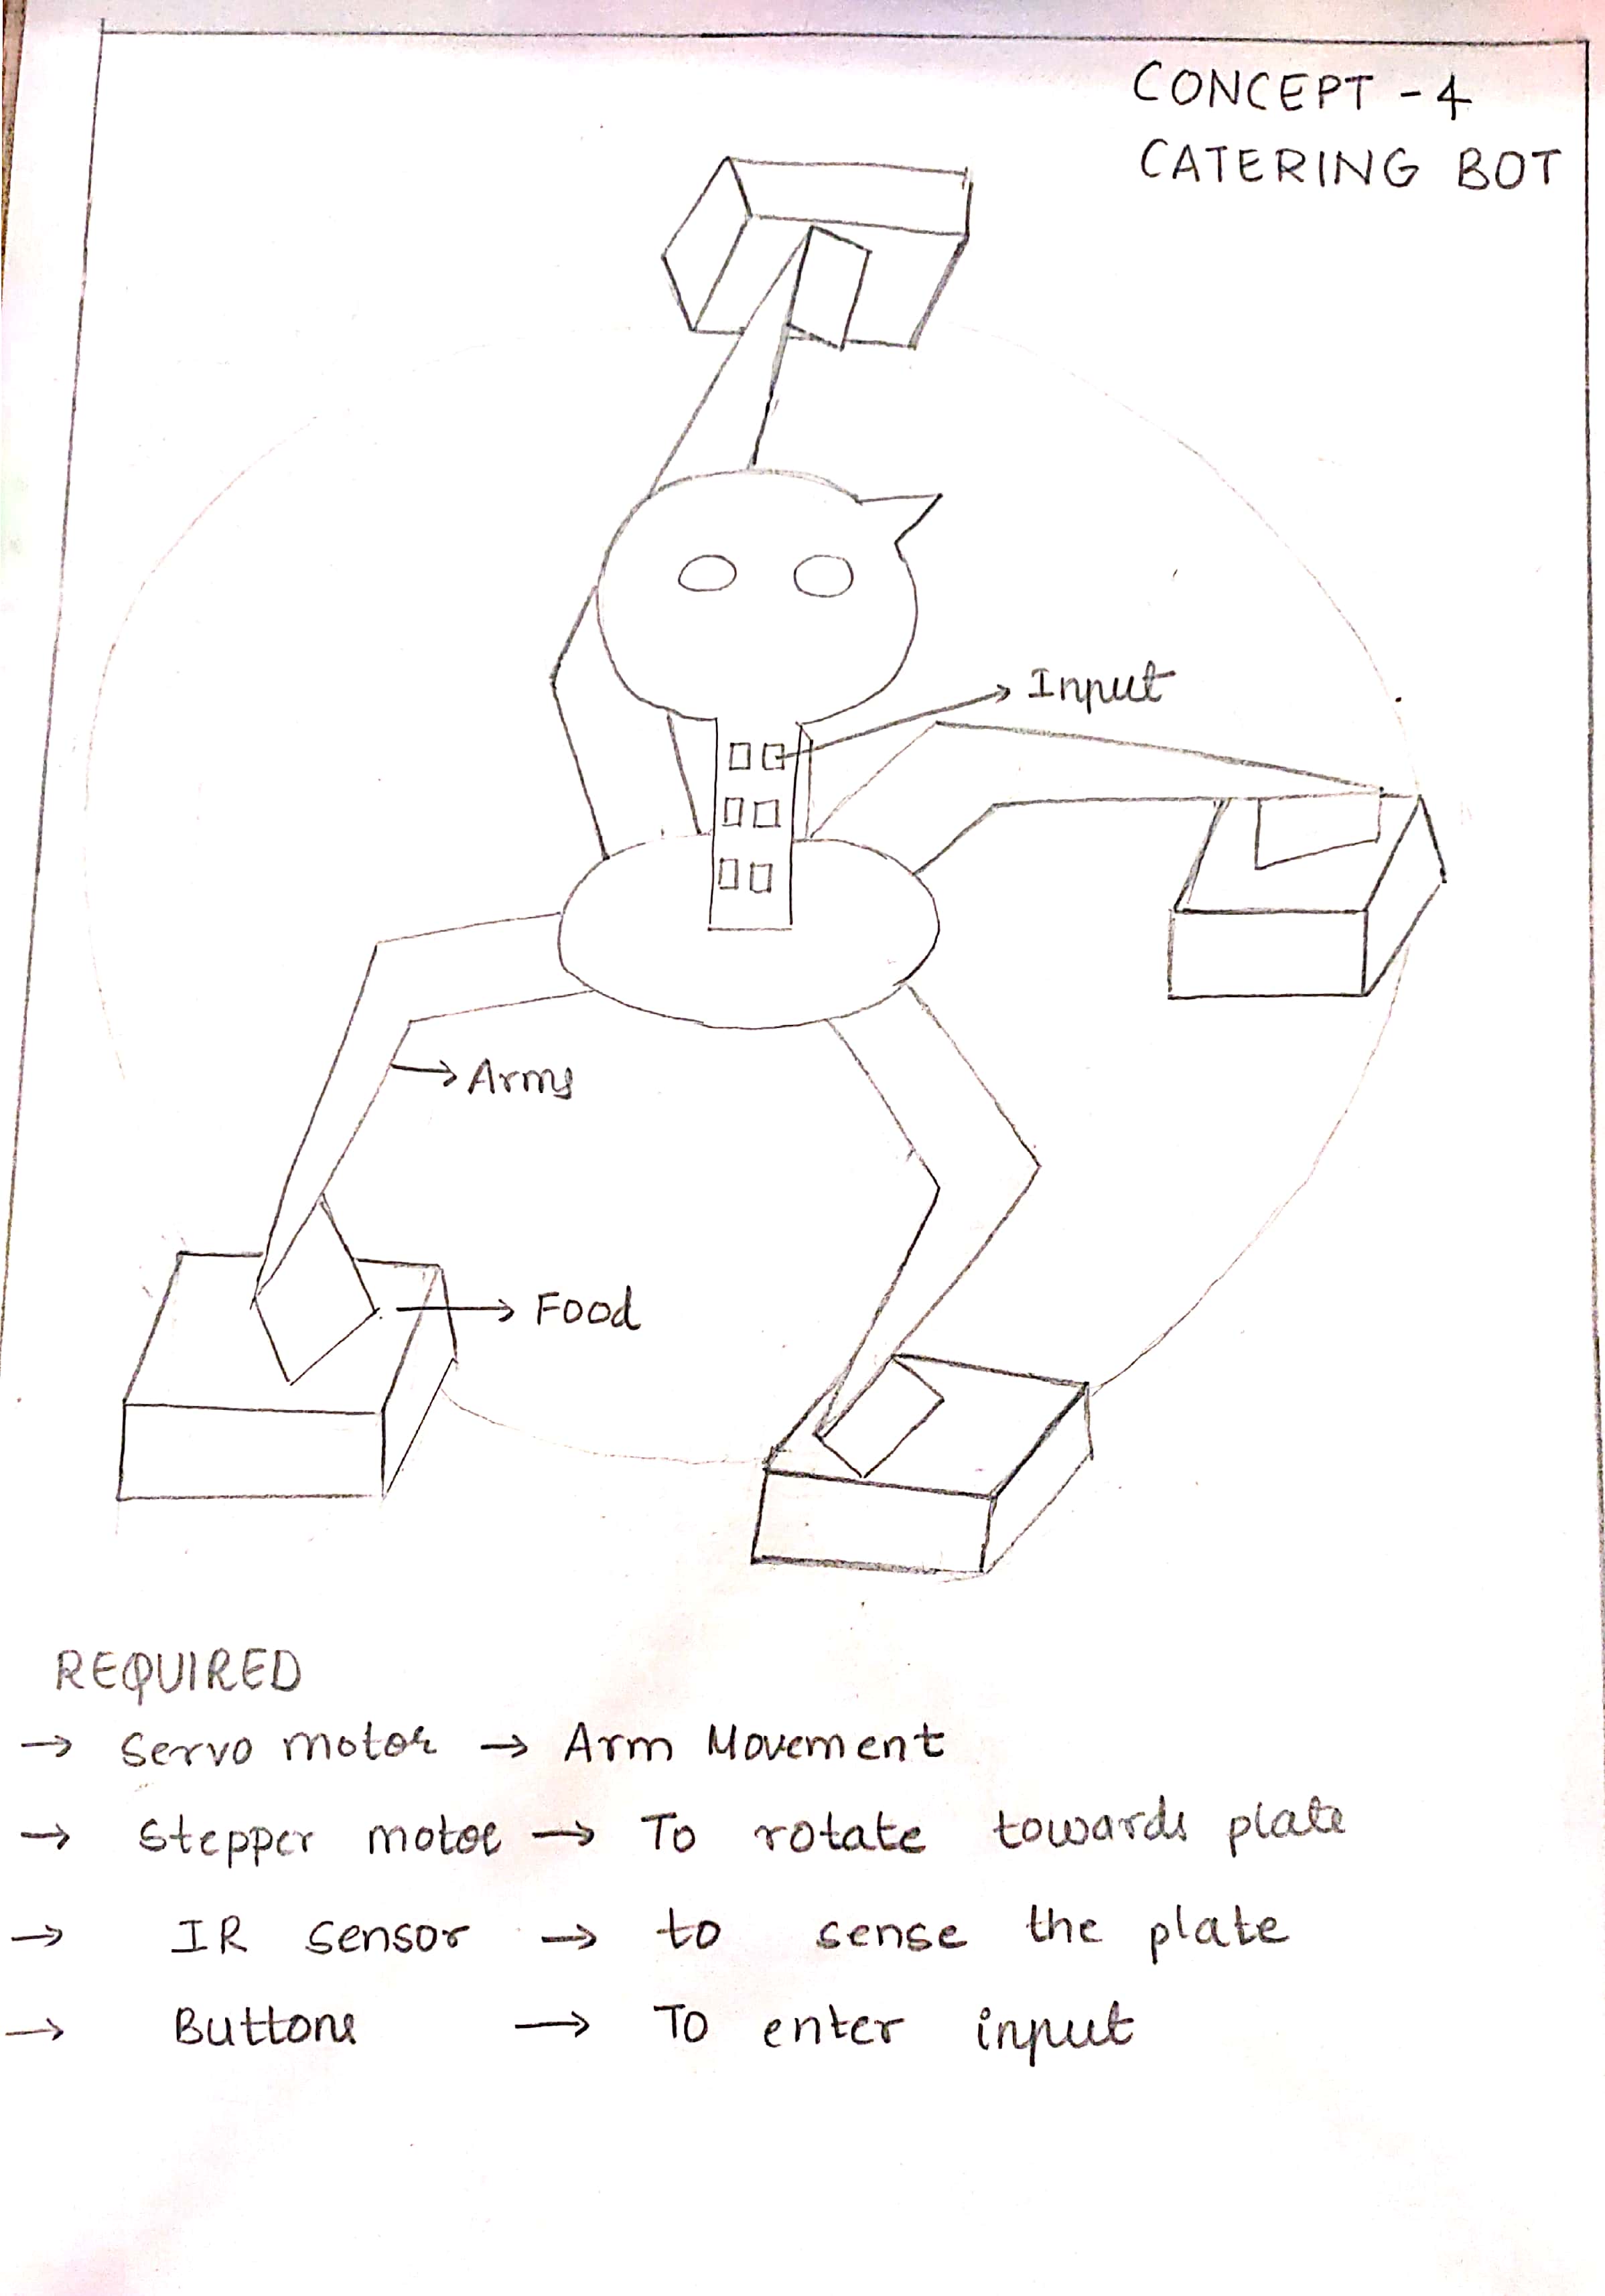 CONCEPT - 4
CATERING BOT
Input
Arms
Food
REQUIRED
→ Servo motor → Arm Movement
→ Stepper motor → To rotate towards plate
→ IR sensor → to sense the plate
→ Buttons → To enter input